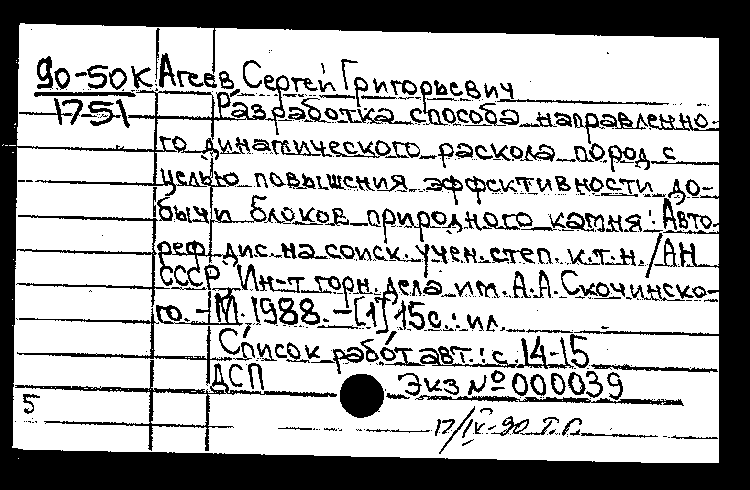 90-50к Агеев Сергей Григорьевич
1751 Разработка способа направленно-
го динамического раскола пород с
целью повышения эффективности до-
бычи блоков природного камня: Авто-
реф. дис. на соиск. учен. степ. к.т.н. / АН
СССР, Ин-т горн. дела им. А.А. Скочинско-
го. - М. 1988. - [1] 15с. : ил.
Список работ авт.: с. 14-15
ДСП Экз № 000039
5
17/IV-90 Т.Г.